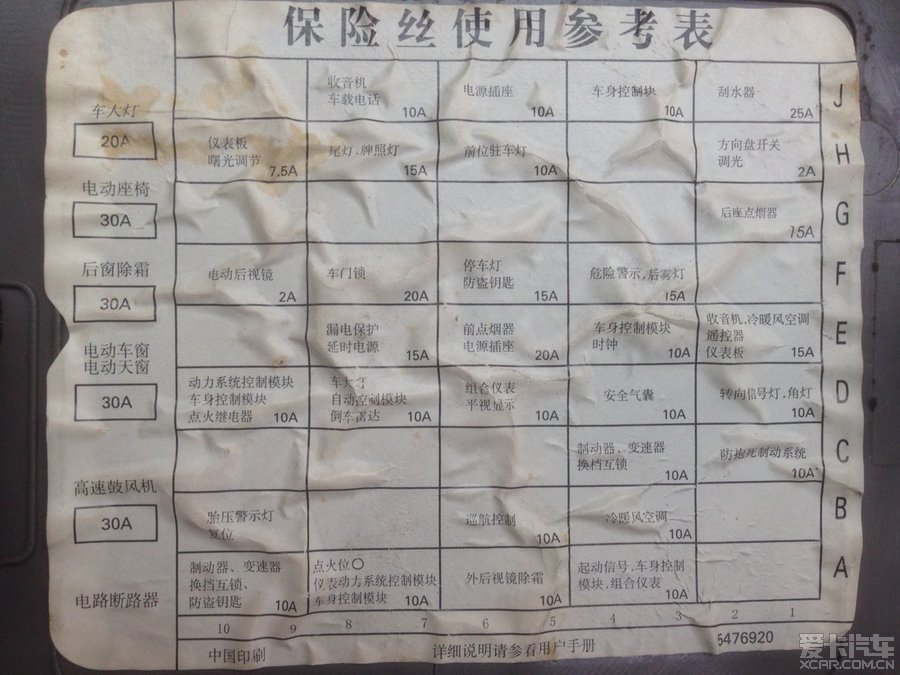 保险丝使用参考表
车大灯
20A
电动座椅
30A
后窗除霜
30A
电动车窗
电动天窗
30A
高速鼓风机
30A
电路断路器
收音机
车载电话
10A
电源插座
10A
车身控制块
10A
刮水器
25A
J
仪表板
曙光调节
7.5A
尾灯.牌照灯
15A
前位驻车灯
10A
方向盘开关
调光
2A
H
后座点烟器
15A
G
电动后视镜
2A
车门锁
20A
停车灯
防盗钥匙
15A
危险警示,后雾灯
15A
F
漏电保护
延时电源
15A
前点烟器
电源插座
20A
车身控制模块
时钟
10A
收音机,冷暖风空调
遥控器
仪表板
15A
E
动力系统控制模块
车身控制模块
点火继电器
10A
车大灯
自动控制模块
倒车雷达
10A
组合仪表
平视显示
10A
安全气囊
10A
转向信号灯,角灯
10A
D
制动器、变速器
换档互锁
10A
防抱死制动系统
10A
C
胎压警示灯
复位
巡航控制
10A
冷暖风空调
10A
B
制动器、变速器
换挡互锁、
防盗钥匙
10A
点火位〇
仪表动力系统控制模块
车身控制模块
10A
外后视镜除霜
10A
起动信号,车身控制
模块,组合仪表
10A
A
10 9 8 7 6 5 4 3 2 1
中国印刷
详细说明请参看用户手册
5476920
爱卡汽车
XCAR.COM.CN